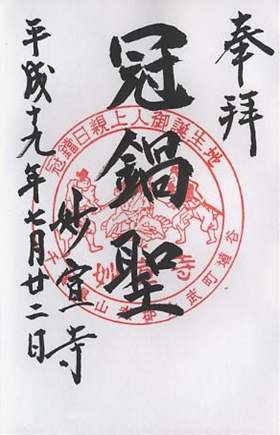 奉拝
冠鍋聖
妙宣寺
平成十九年七月廿二日
冠鐺日親上人御誕生地
武町埴谷